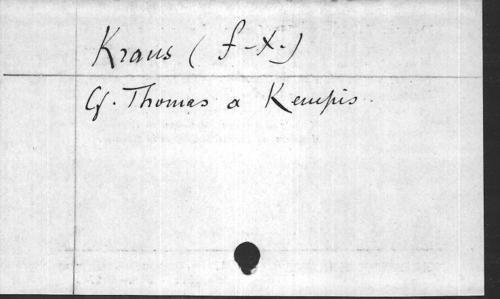 Kraus (f-x.)
Cf. Thomas a Kempis.